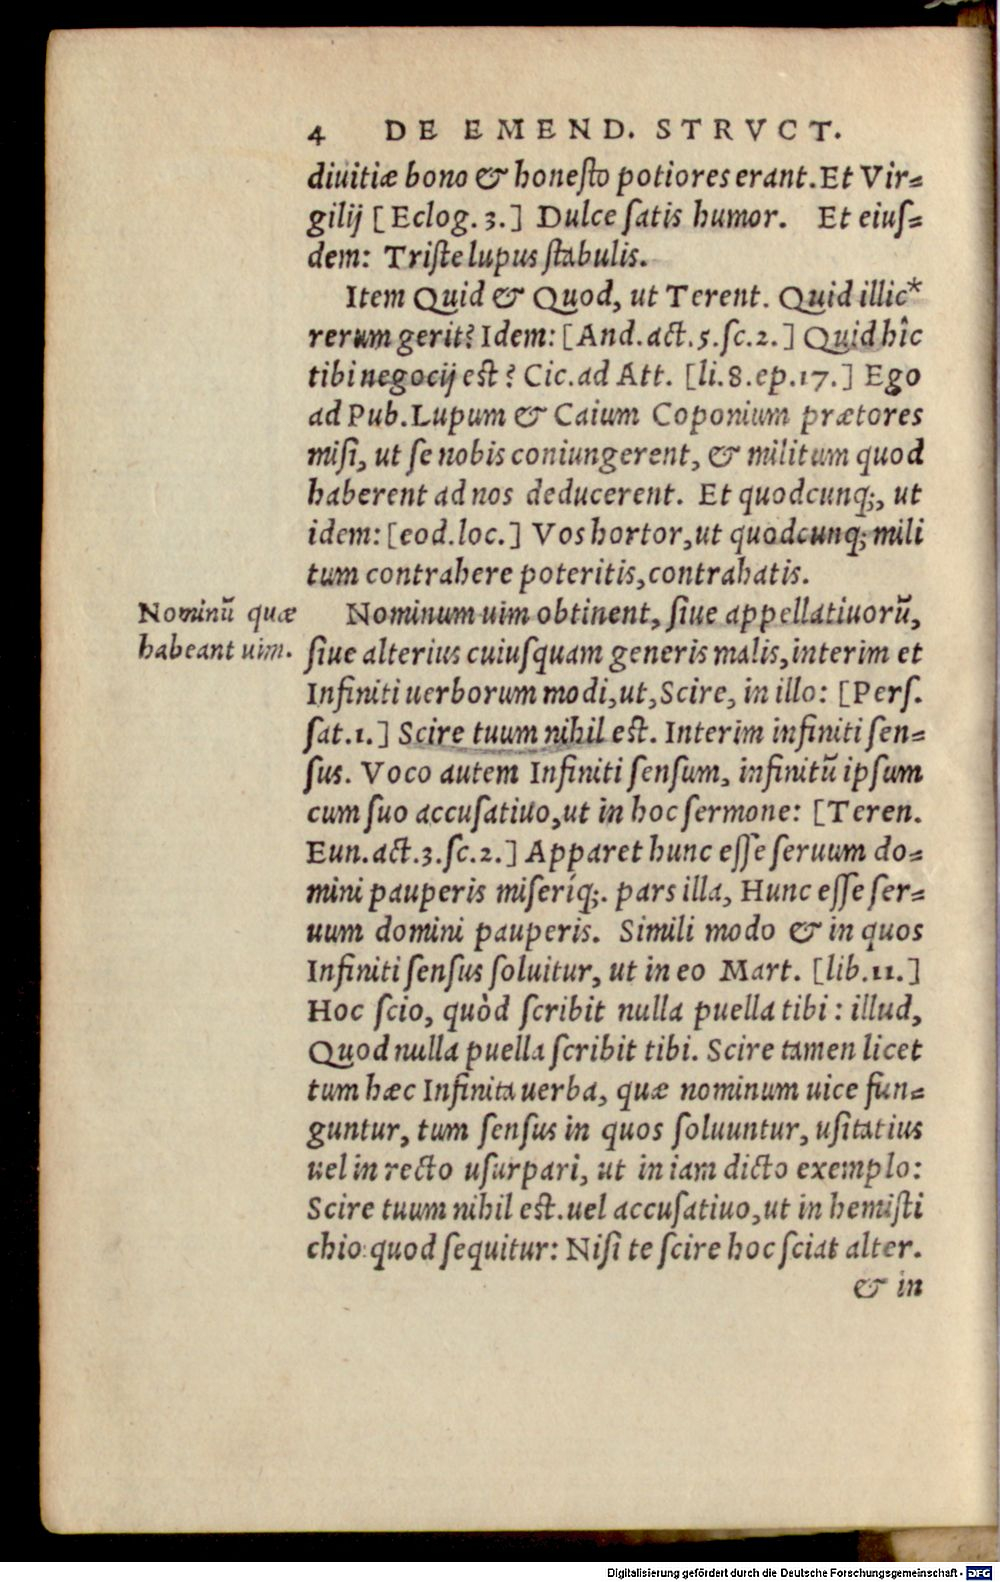 4 DE EMEND. STRVCT.
diuitiæ bono & honesto potiores erant. Et Vir=
gilij [Eclog. 3.] Dulce satis humor. Et eius=
dem: Triste lupus stabulis.
Item Quid & Quod, ut Terent. Quid illic*
rerum gerit? Idem: [And. act. 5. sc. 2.] Quid hîc
tibi negocij est? Cic. ad Att. [li. 8. ep. 17.] Ego
ad Pub. Lupum & Caium Coponium prætores
misi, ut se nobis coniungerent, & militum quod
haberent ad nos deducerent. Et quodcunq;, ut
idem: [eod. loc.] Vos hortor, ut quodcunq; mili
tum contrahere poteritis, contrahatis.
Nominū quæ
habeant uim.
Nominum uim obtinent, siue appellatiuorū,
siue alterius cuiusquam generis malis, interim et
Infiniti uerborum modi, ut, Scire, in illo: [Pers.
sat. 1.] Scire tuum nihil est. Interim infiniti sen=
sus. Voco autem Infiniti sensum, infinitū ipsum
cum suo accusatiuo, ut in hoc sermone: [Teren.
Eun. act. 3. sc. 2.] Apparet hunc esse seruum do=
mini pauperis miseríq;. pars illa, Hunc esse ser=
uum domini pauperis. Simili modo & in quos
Infiniti sensus soluitur, ut in eo Mart. [lib. 11.]
Hoc scio, quòd scribit nulla puella tibi: illud,
Quod nulla puella scribit tibi. Scire tamen licet
tum hæc Infinita uerba, quæ nominum uice fun=
guntur, tum sensus in quos soluuntur, usitatius
uel in recto usurpari, ut in iam dicto exemplo:
Scire tuum nihil est. uel accusatiuo, ut in hemisti
chio quod sequitur: Nisi te scire hoc sciat alter.
& in
Digitalisierung gefördert durch die Deutsche Forschungsgemeinschaft - DFG